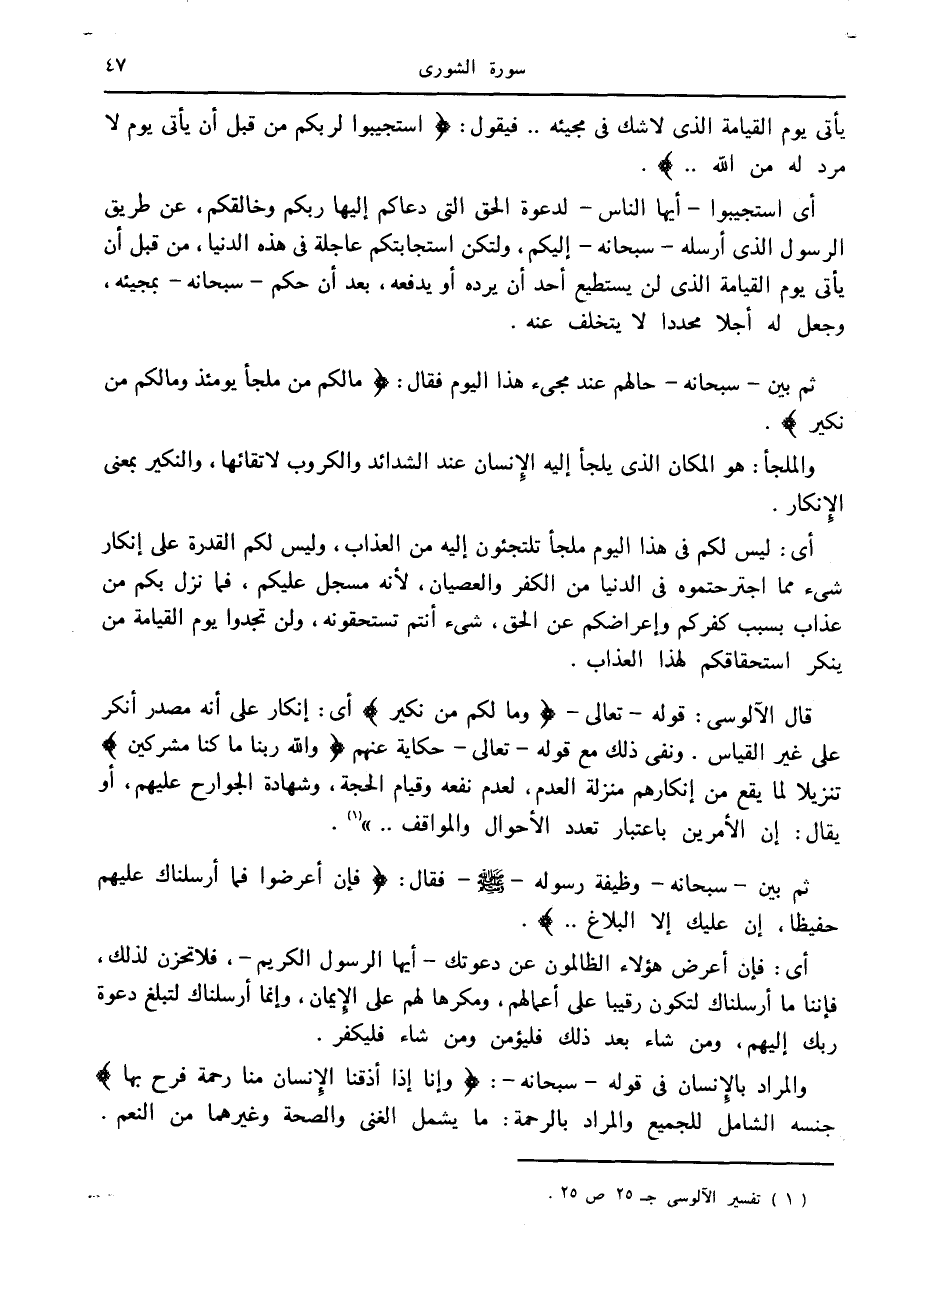 سورة الشورى ٤٧
يأتى يوم القيامة الذى لاشك فى مجيئه .. فيقول : ﴿ استجيبوا لربكم من قبل أن يأتى يوم لا
مرد له من الله .. ﴾ .
أى استجيبوا – أيها الناس – لدعوة الحق التى دعاكم إليها ربكم وخالقكم ، عن طريق
الرسول الذى أرسله – سبحانه – إليكم ، ولتكن استجابتكم عاجلة فى هذه الدنيا ، من قبل أن
يأتى يوم القيامة الذى لن يستطيع أحد أن يرده أو يدفعه ، بعد أن حكم – سبحانه – بمجيئه ،
وجعل له أجلا محددا لا يتخلف عنه .
ثم بين – سبحانه – حالهم عند مجىء هذا اليوم فقال : ﴿ مالكم من ملجأ يومئذ ومالكم من
نكير ﴾ .
والملجأ : هو المكان الذى يلجأ إليه الإنسان عند الشدائد والكروب لاتقائها ، والنكير بمعنى
الإنكار .
أى : ليس لكم فى هذا اليوم ملجأ تلتجئون إليه من العذاب ، وليس لكم القدرة على إنكار
شىء مما اجترحتموه فى الدنيا من الكفر والعصيان ، لأنه مسجل عليكم ، فما نزل بكم من
عذاب بسبب كفركم وإعراضكم عن الحق ، شىء أنتم تستحقونه ، ولن تجدوا يوم القيامة من
ينكر استحقاقكم لهذا العذاب .
قال الآلوسى : قوله – تعالى – ﴿ وما لكم من نكير ﴾ أى : إنكار على أنه مصدر أنكر
على غير القياس . ونفى ذلك مع قوله – تعالى – حكاية عنهم ﴿ والله ربنا ما كنا مشركين ﴾
تنزيلا لما يقع من إنكارهم منزلة العدم ، لعدم نفعه وقيام الحجة ، وشهادة الجوارح عليهم ، أو
يقال : إن الأمرين باعتبار تعدد الأحوال والمواقف .. »(١) .
ثم بين – سبحانه – وظيفة رسوله – ﷺ – فقال : ﴿ فإن أعرضوا فما أرسلناك عليهم
حفيظا ، إن عليك إلا البلاغ .. ﴾ .
أى : فإن أعرض هؤلاء الظالمون عن دعوتك – أيها الرسول الكريم – ، فلاتحزن لذلك ،
فإننا ما أرسلناك لتكون رقيبا على أعمالهم ، ومكرها لهم على الإيمان ، وإنما أرسلناك لتبلغ دعوة
ربك إليهم ، ومن شاء بعد ذلك فليؤمن ومن شاء فليكفر .
والمراد بالإنسان فى قوله – سبحانه – : ﴿ وإنا إذا أذقنا الإنسان منا رحمة فرح بها ﴾
جنسه الشامل للجميع والمراد بالرحمة : ما يشمل الغنى والصحة وغيرهما من النعم .
( ١ ) تفسير الآلوسى جـ ٢٥ ص ٢٥ .